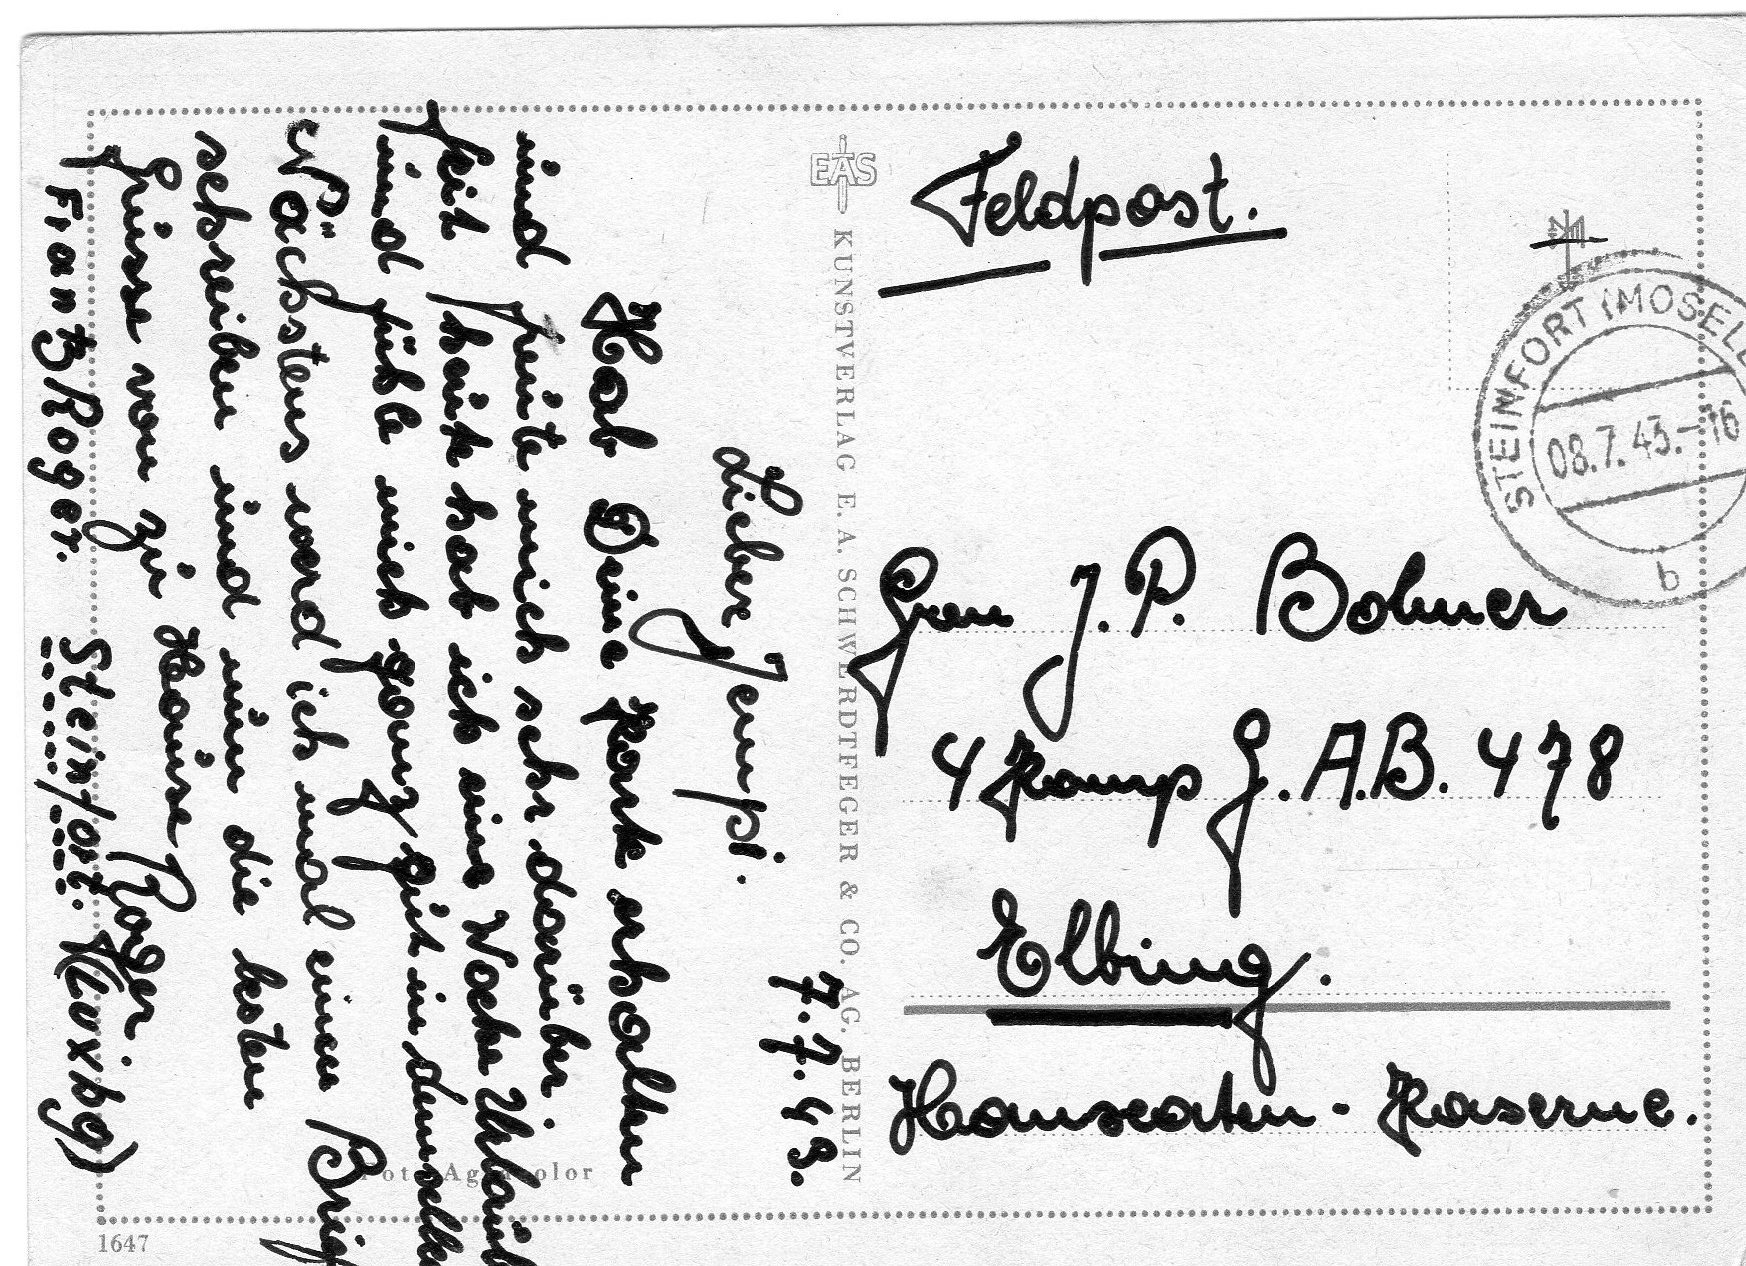 7.7.43.
Lieber Jempi.
Hab Deine Kark erhalten
und freute mich sehr darüber.
Seit heute hab ich eine Woche Urlaub
und fühle mich ganz gut in demselben
Nächstens werd ich mal einen Brief
schreiben und nun die besten
Grüsse von zu Hause Roger
Frantz Roger. Steinfort. (Luxbg)
EAS
KUNSTVERLAG E. A. SCHWERDTFEGER & CO. AG. BERLIN
Foto Agfacolor
1647
Feldpost.
STEINFORT (MOSELL
08.7.43.-16
b
Gren J. P. Bohmer
4 Komp G. A.B. 478
Elbing.
Hanseaten-Kaserne.